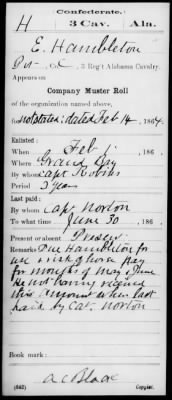 Confederate.
H 3 Cav. Ala.
E. Hambleton
Pvt, Co. C, 3 Reg't Alabama Cavalry.
Appears on
Company Muster Roll
of the organization named above,
for not stated; dated Feb 14, 1864.
Enlisted:
When Feb 1, 186 .
Where Grand Bay
By whom Capt Robins
Period 3 years
Last paid:
By whom Cap. Norton
To what time June 30, 186 .
Present or absent Present
Remarks: Due Hambleton for
use & risk of horse pay
for months of may & June
He not having received
this amount when last
paid by Cap. Norton
Book mark:
(642) Copyist.